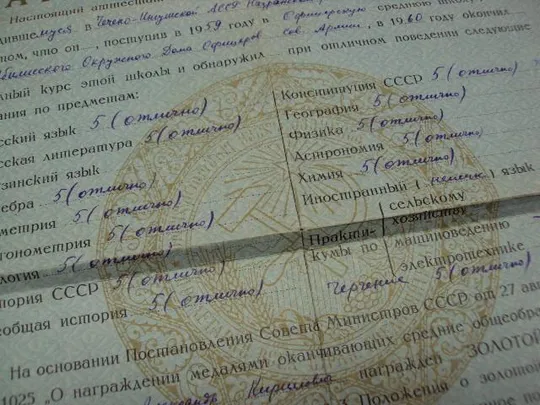 Настоящий аттестат
дившемуся в Чечено-Ингушской АССР
том, что он, поступив в 1959 году в Офицерскую среднюю школу
Окружного Дома Офицеров Сов. Армии, в 1960 году окончил
ный курс этой школы и обнаружил при отличном поведении следующие
ания по предметам:
сский язык 5 (отлично)
сская литература 5 (отлично)
зинский язык
ебра 5 (отлично)
метрия 5 (отлично)
гонометрия 5 (отлично)
логия 5 (отлично)
тория СССР 5 (отлично)
еобщая история 5 (отлично)
Конституция СССР 5 (отлично)
География 5 (отлично)
Физика 5 (отлично)
Астрономия 5 (отлично)
Химия 5 (отлично)
Иностранный (немецк.) язык
Практикумы по
сельскому хозяйству
машиноведению
электротехнике
Черчение 5 (отлично)
На основании Постановления Совета Министров СССР от 27 авг
1025 „О награждении медалями оканчивающих средние общеобра
Александр Кириллович награжден ЗОЛОТОЙ
Положения о золотой